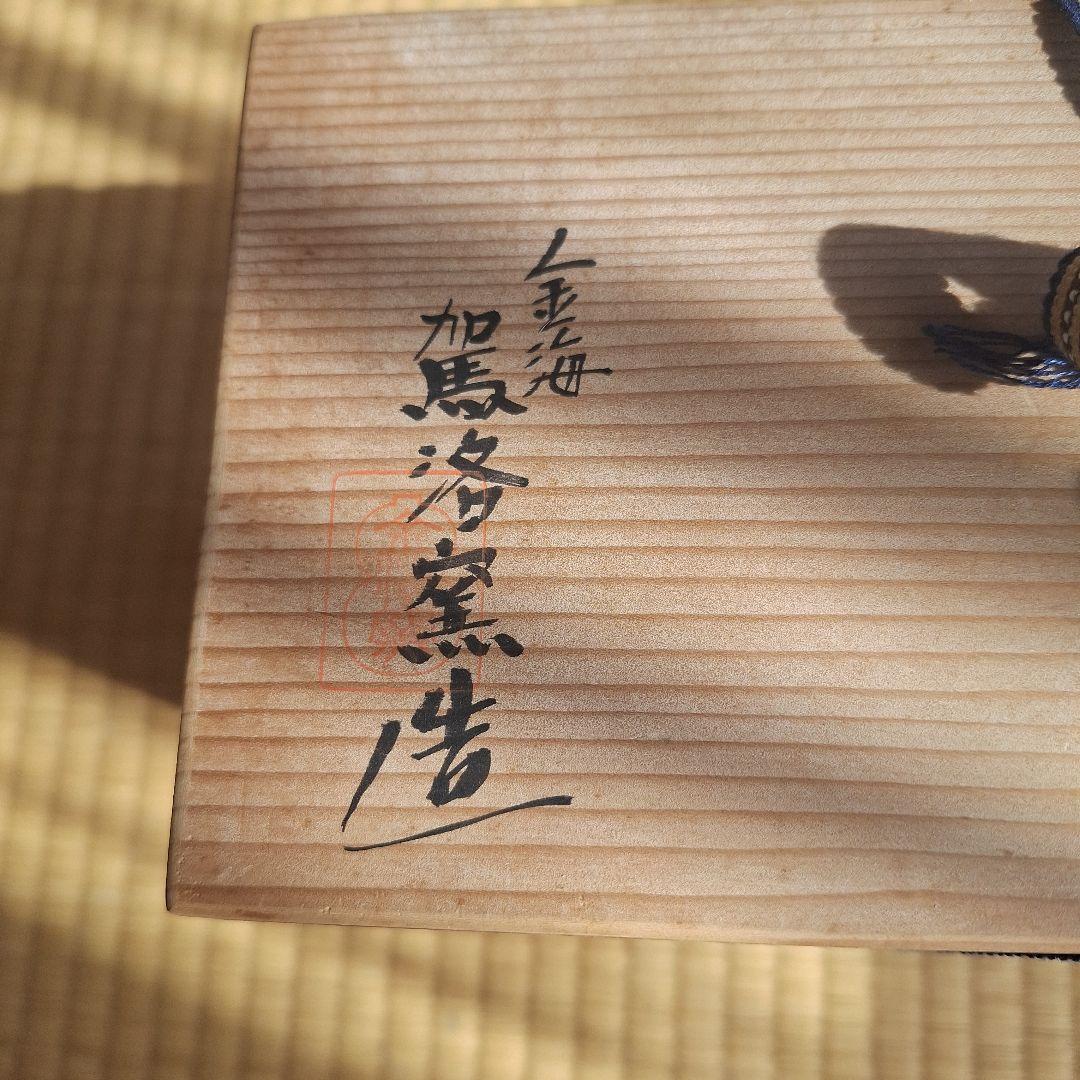 金海
駕洛窯造